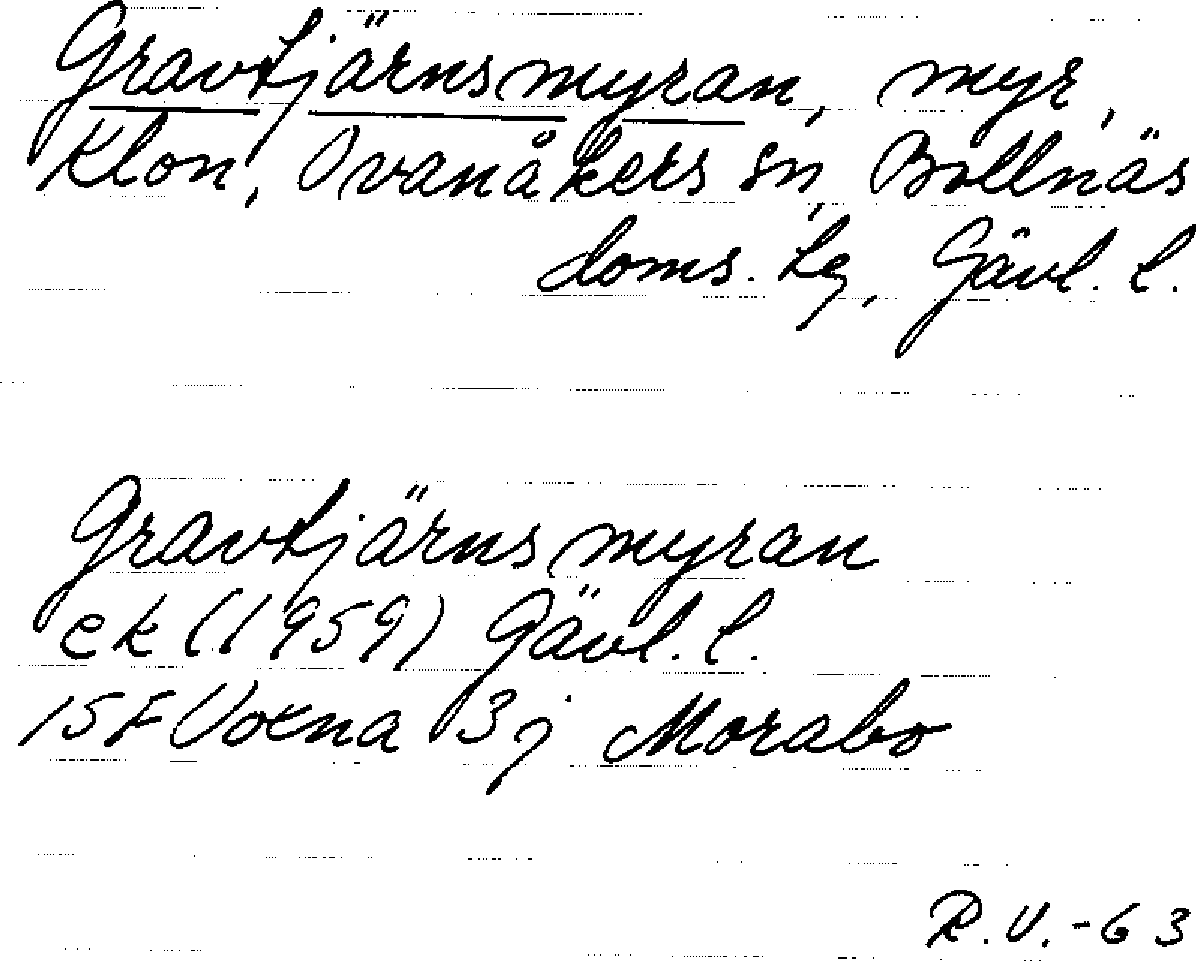 Gravtjärnsmyran, myr,
Klon, Ovanåkers sn, Bollnäs
doms. lg, Gävl. l.
Gravtjärnsmyran
ek (1959) Gävl. l.
15F Voxna 3j Morabo
R.V.-63